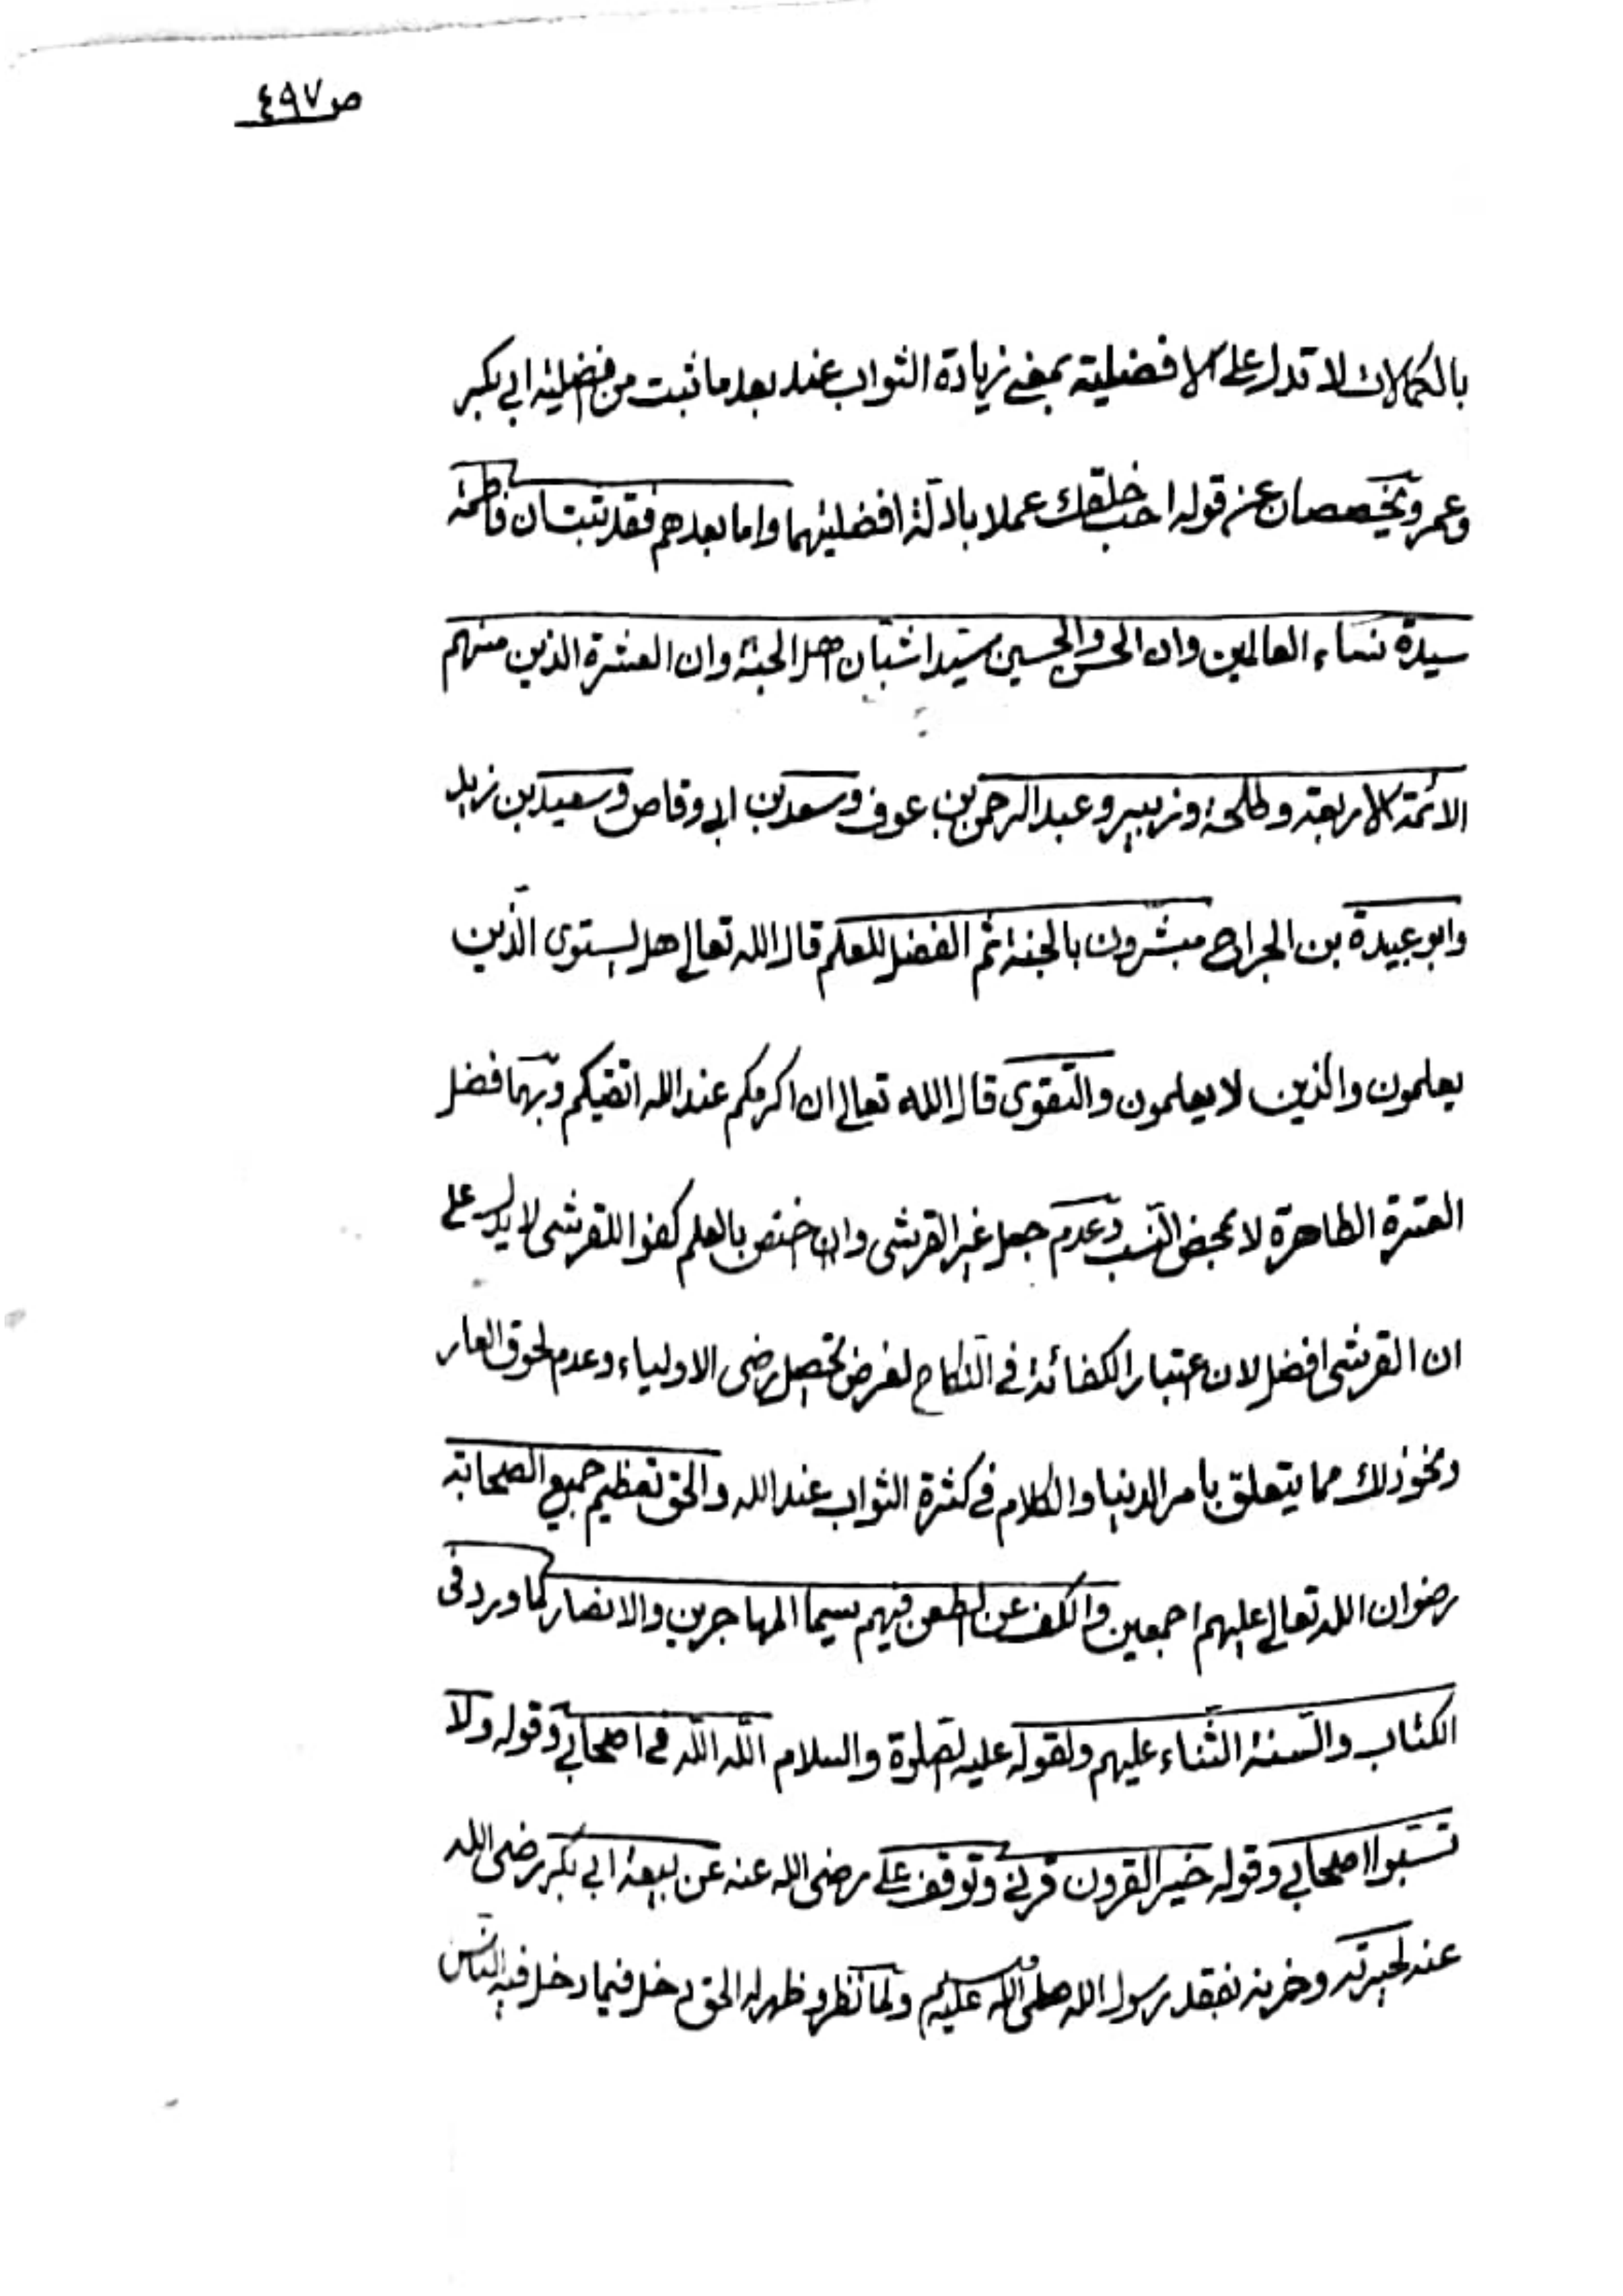 ص ٤٩٧
بالكمالات لا تدل على الافضلية بمعنى زيادة الثواب عند بعد ما ثبت من افضلية ابي بكر
وعمر ويخصصان عن قوله احب خلقك عملا بادلة افضليتهما واما بعدهم فقد ثبت ان فاطمة
سيدة نساء العالمين وان الحسن والحسين سيدا شبان اهل الجنة وان العشرة الذين منهم
الائمة الاربعة وطلحة وزبير وعبد الرحمن بن عوف وسعد بن ابي وقاص وسعيد بن زيد
وابو عبيدة بن الجراح مبشرون بالجنة ثم الفضل للعلم قال الله تعالى هل يستوى الذين
يعلمون والذين لا يعلمون والتقوى قال الله تعالى ان اكرمكم عند الله اتقيكم وبهما فضل
العترة الطاهرة لا بمحض النسب وعدم جعل غير القرشى وان اختص بالعلم كفوا للقرشى لا يدل على
ان القرشى افضل لان اعتبار الكفائة في النكاح لغرض تحصل رضى الاولياء وعدم لحوق العار
ونحو ذلك مما يتعلق بامر الدنيا والكلام في كثرة الثواب عند الله والحق تعظيم جميع الصحابة
رضوان الله تعالى عليهم اجمعين والكف عن الطعن فيهم سيما المهاجرين والانصار كما ورد فى
الكتاب والسنة الثناء عليهم ولقوله عليه الصلوة والسلام الله الله في اصحابي وقوله ولا
تسبوا اصحابي وقوله خير القرون قرني وتوقف على رضى الله عنه عن بيعة ابي بكر رضى الله
عنه لحيرته وحزنه بفقد رسول الله صلى الله عليه وسلم ولما نظر وظهر له الحق دخل فيما دخل فيه الناس